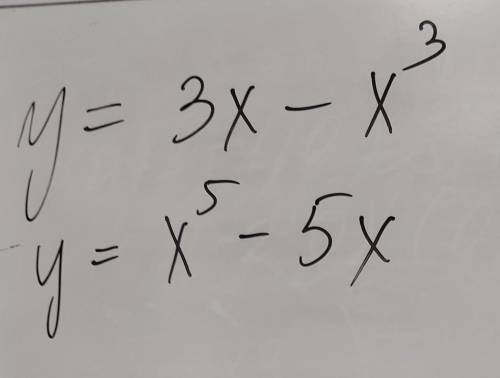 y = 3x - x³
y = x⁵ - 5x